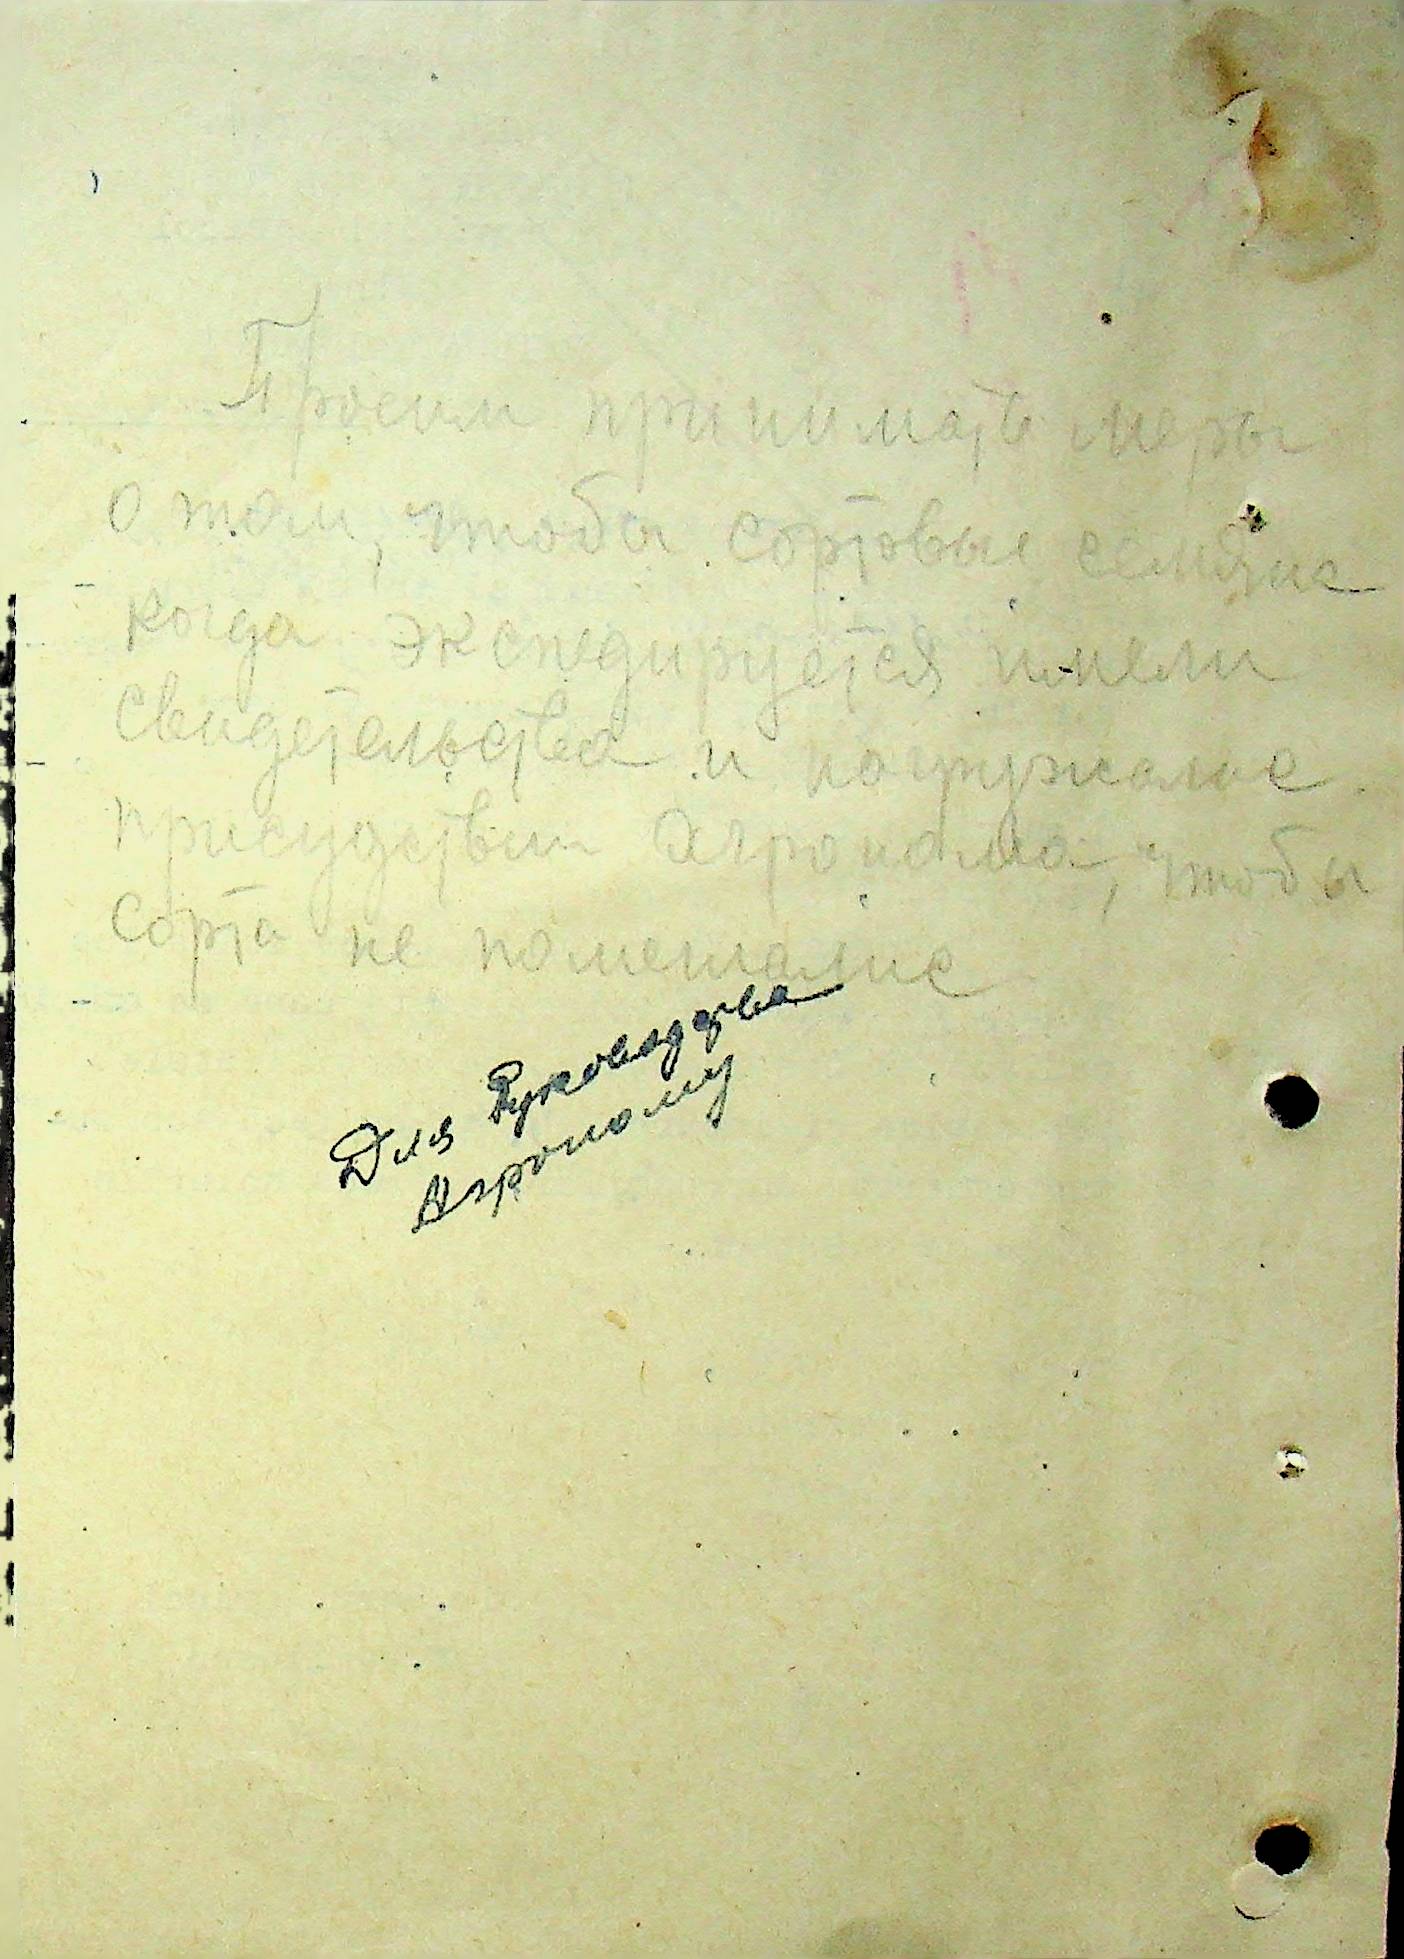 Просим принимать меры
о том, чтобы сортовые семяне
когда экспедируется имели
свидетельства и погружалис
присудствии Агронома, чтобы
сорта не помешалис
Для Руководства
Агроному